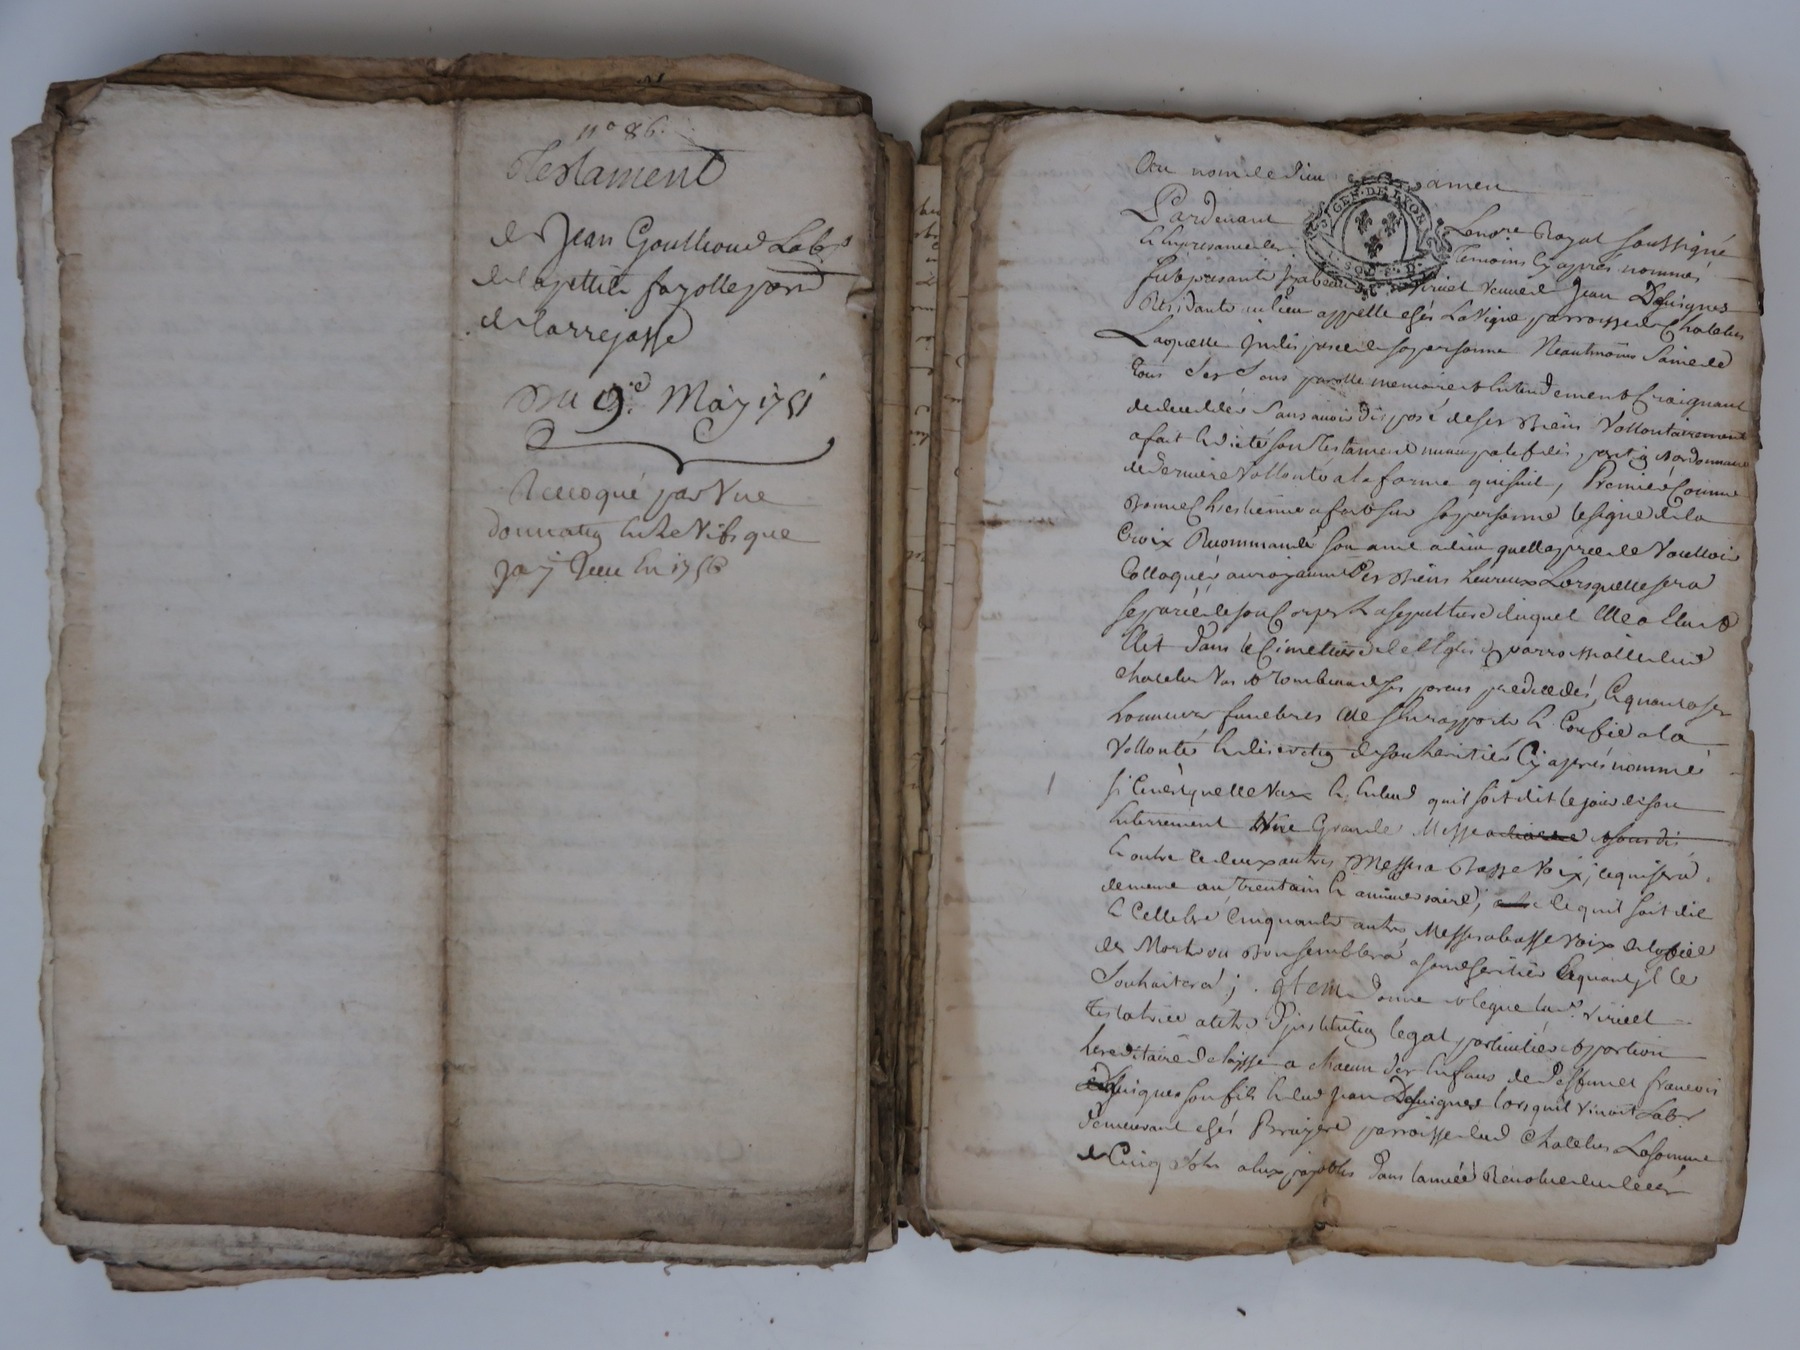 n° 86.
Testament
de Jean Gouthoud Lab.r
de la petitte fayolle parr.
de Larrejasse
Du 9.e May 1751
Revoqué par Une
donnation entre Vifs que
jay Receu En 1756
Au nom de Dieu amen
GEN. DE LYON
Pardevant Le no.re Royal soussigné
et en presance des temoins cy apres nommés
fut presante Izabeau Viricel veuve de Jean Deguignes
Residante au lieu appellé chés La Vigne parroisse de Chatelus
Laquelle indisposée de sa personne Neantmoins Saine de
tous Ses Sens parolle memoire et Entendement Craignant
de decedder Sans avoir disposé de ses Biens Vollontairement
a fait et dicté son Testament nuncupatif
de derniere Vollonté a la forme qui suit, Premier Comme
Bonne Chrestienne a fait sur sa personne le signe de la
Croix Recommandé son ame a dieu quelle prie de Voulloir
Colloquer au royaume Des Biens heureux Lorsquelle sera
separée de son Corps La sepulture duquel Elle a Elu
Elit Dans le Cimetiere de l'Eglise parroissialle dud
Chatelus Vas et Tombeau de ses parens predecedés, Et quant a ses
honneurs funebres Elle s'en rapporte Et Confie a la
Vollonté Et discretion de son heritier Cy apres nommé
si Cenest quelle Veux Et Entend quil soit dit le jour de son
Enterrement Une Grande Messe
Et outre ce deux autres Messes a Basse Voix, ce qui sera
de meme au Trentain Et anniversaire, ce quil soit dit
Et Cellebré Cinquante autres Messes a basse voix de loffice
des Morts ou Bon semblera a son heritier Et quand Il le
Souhaitera; Item donne et legue lad. Viricel
testatrice a titre D'institution legat particulier et portion
hereditaire delaisse a chacun des Enfans de Deffunct francois
Deguignes son fils Et dud Jean Deguignes lorsquil vivoit Lab.r
demeurant chés Bruyere parroisse dud Chatelus La somme
de Cinq sols a Eux payables Dans lannée Revolue du decés